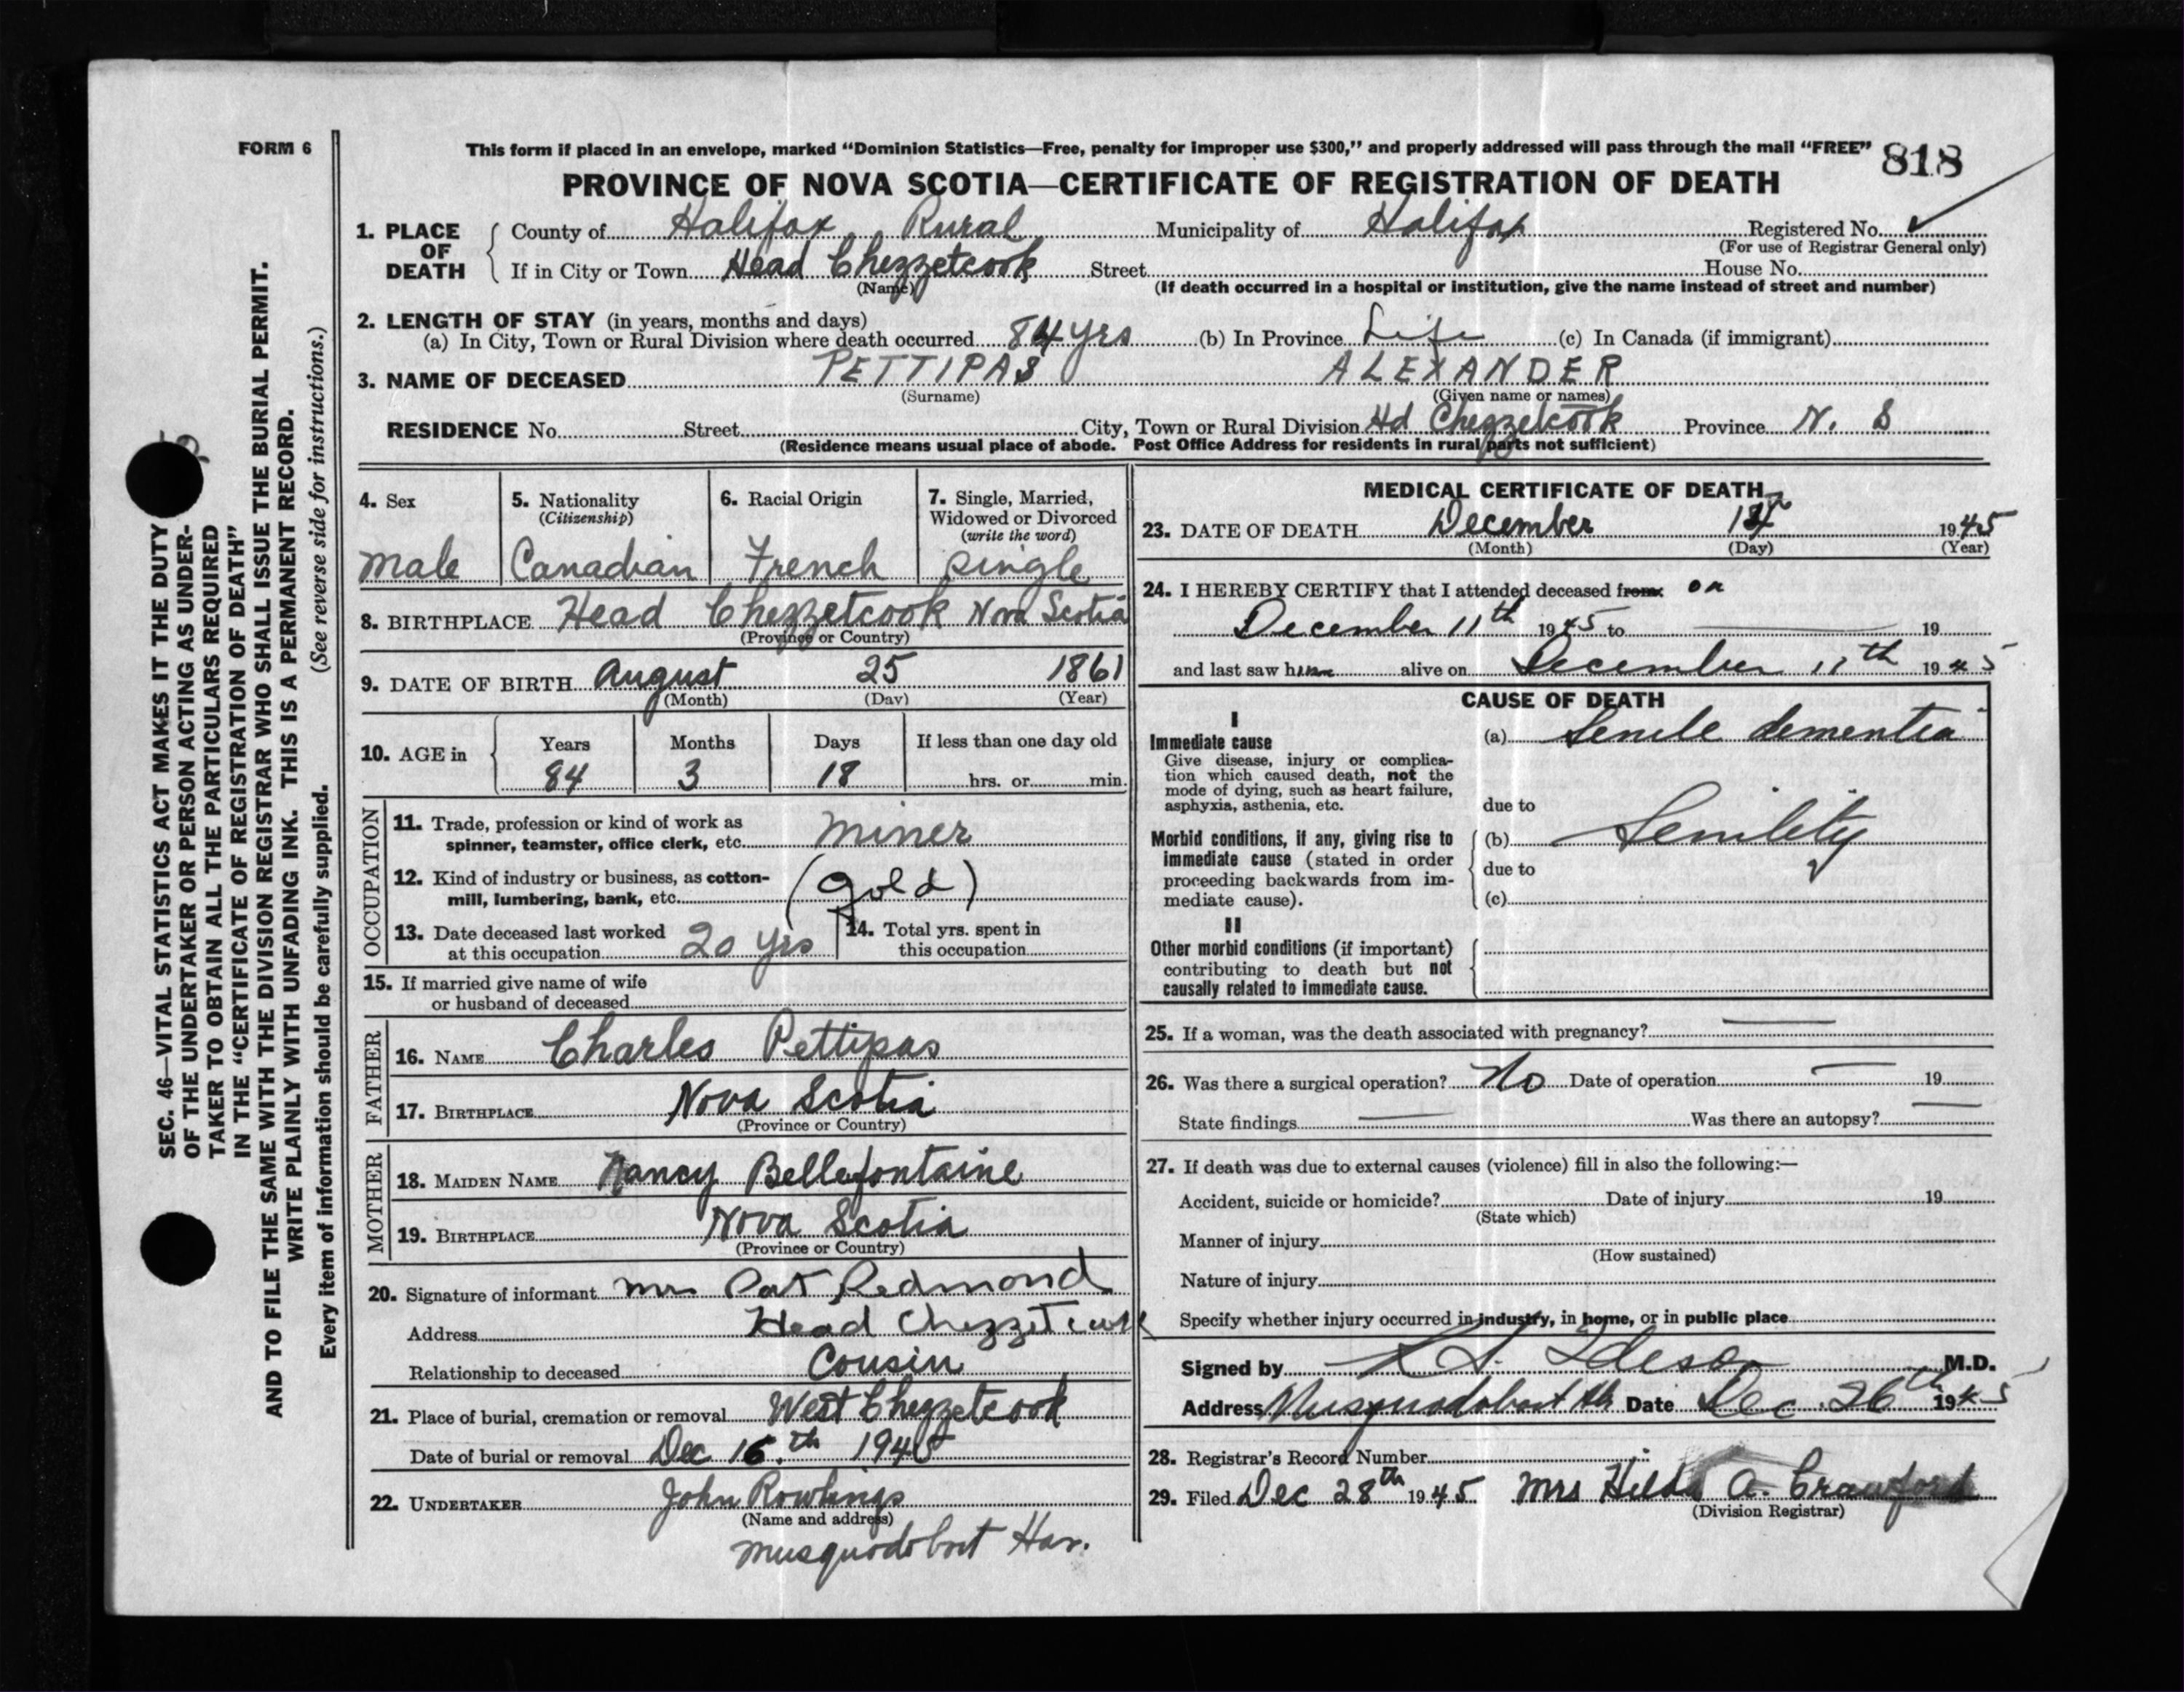 FORM 6
This form if placed in an envelope, marked “Dominion Statistics—Free, penalty for improper use $300,” and properly addressed will pass through the mail “FREE” 818
PROVINCE OF NOVA SCOTIA—CERTIFICATE OF REGISTRATION OF DEATH
1. PLACE OF DEATH
County of Halifax Rural Municipality of Halifax Registered No.
(For use of Registrar General only)
If in City or Town Head Chezzetcook Street House No.
(Name) (If death occurred in a hospital or institution, give the name instead of street and number)
2. LENGTH OF STAY (in years, months and days)
(a) In City, Town or Rural Division where death occurred 84 yrs (b) In Province Life (c) In Canada (if immigrant)
3. NAME OF DECEASED PETTIPAS ALEXANDER
(Surname) (Given name or names)
RESIDENCE No. Street City, Town or Rural Division Hd Chezzetcook Province N. S
(Residence means usual place of abode. Post Office Address for residents in rural parts not sufficient)
SEC. 46—VITAL STATISTICS ACT MAKES IT THE DUTY
OF THE UNDERTAKER OR PERSON ACTING AS UNDER-
TAKER TO OBTAIN ALL THE PARTICULARS REQUIRED
IN THE “CERTIFICATE OF REGISTRATION OF DEATH”
AND TO FILE THE SAME WITH THE DIVISION REGISTRAR WHO SHALL ISSUE THE BURIAL PERMIT.
WRITE PLAINLY WITH UNFADING INK. THIS IS A PERMANENT RECORD.
Every item of information should be carefully supplied. (See reverse side for instructions.)
4. Sex
Male
5. Nationality
(Citizenship)
Canadian
6. Racial Origin
French
7. Single, Married,
Widowed or Divorced
(write the word)
Single
8. BIRTHPLACE Head Chezzetcook Nova Scotia
(Province or Country)
9. DATE OF BIRTH August 25 1861
(Month) (Day) (Year)
10. AGE in
Years Months Days If less than one day old
84 3 18 hrs. or min.
OCCUPATION
11. Trade, profession or kind of work as
spinner, teamster, office clerk, etc. Miner
12. Kind of industry or business, as cotton-
mill, lumbering, bank, etc. (gold)
13. Date deceased last worked
at this occupation 20 yrs
14. Total yrs. spent in
this occupation
15. If married give name of wife
or husband of deceased
FATHER
16. NAME Charles Pettipas
17. BIRTHPLACE Nova Scotia
(Province or Country)
MOTHER
18. MAIDEN NAME Nancy Bellefontaine
19. BIRTHPLACE Nova Scotia
(Province or Country)
20. Signature of informant Mrs Pat Redmond
Address Head Chezzetcook
Relationship to deceased Cousin
21. Place of burial, cremation or removal West Chezzetcook
Date of burial or removal Dec 16th 1945
22. UNDERTAKER John Rowlings
(Name and address)
Musquodoboit Har.
MEDICAL CERTIFICATE OF DEATH
23. DATE OF DEATH December 1945
(Month) (Day) (Year)
24. I HEREBY CERTIFY that I attended deceased from: on
December 11th 1945 to 19
and last saw him alive on December 11th 1945
CAUSE OF DEATH
I
Immediate cause
Give disease, injury or complica-
tion which caused death, not the
mode of dying, such as heart failure,
asphyxia, asthenia, etc.
(a) Senile dementia
due to
Morbid conditions, if any, giving rise to
immediate cause (stated in order
proceeding backwards from im-
mediate cause).
(b) Senility
due to
(c)
II
Other morbid conditions (if important)
contributing to death but not
causally related to immediate cause.
25. If a woman, was the death associated with pregnancy?
26. Was there a surgical operation? No Date of operation 19
State findings Was there an autopsy?
27. If death was due to external causes (violence) fill in also the following:—
Accident, suicide or homicide? Date of injury 19
(State which)
Manner of injury
(How sustained)
Nature of injury
Specify whether injury occurred in industry, in home, or in public place
Signed by M.D.
Address Musquodoboit Hr Date Dec. 26th 1945
28. Registrar's Record Number
29. Filed Dec 28th 1945 Mrs Hilda A. Crawford
(Division Registrar)